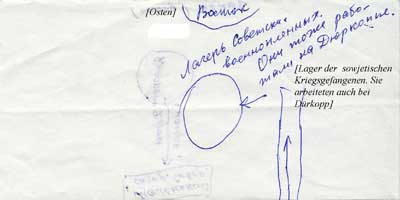 [Osten]
Восток
Лагерь Советских
военнопленных.
Они тоже рабо-
тали на Дюркоппе.
[Lager der sowjetischen
Kriegsgefangenen. Sie
arbeiteten auch bei
Dürkopp]